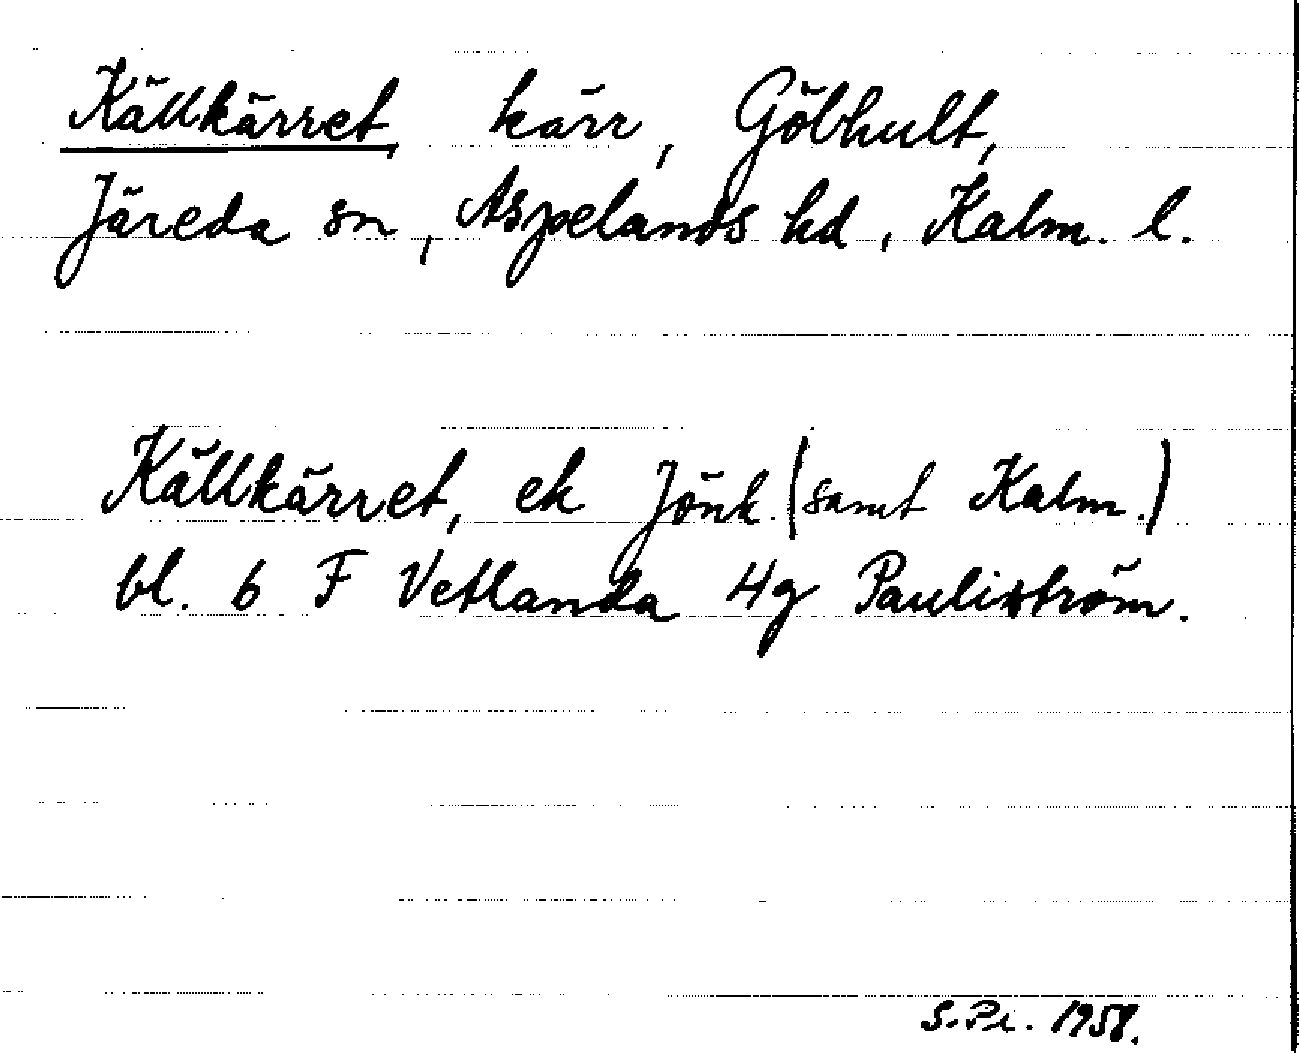 Källkärret, kärr, Göbhult,
Järeda sn, Aspelands hd, Kalm. l.
Källkärret, ek Jönk. (samt Kalm.)
bl. 6 F Vetlanda 4g Pauliström.
S.Pr. 1958.